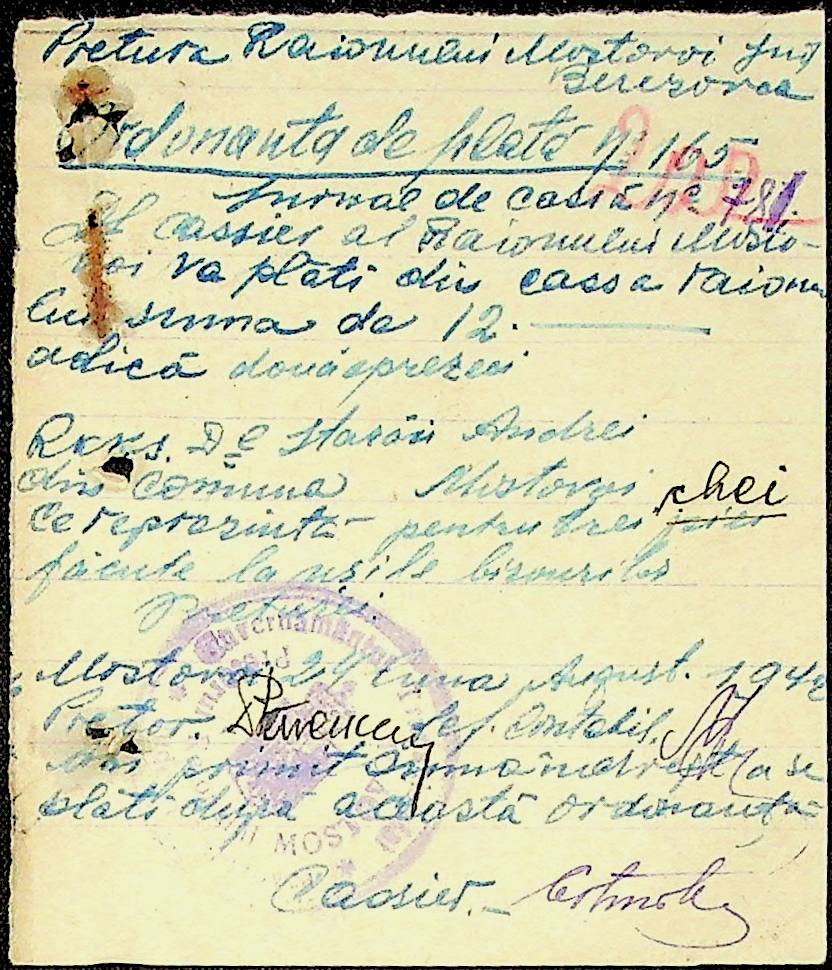 Pretura Raionului Mostovoi Jud
Berezovca
Ordonanta de plată No 165
Jurnal de casă No 781.
Dl cassier al Raionului Mosto-
voi va plăti din cassa raionu
lui suma de 12.
adică douăsprezeci
Rkks. Dl Andrei
din comuna Mostovoi chei
ce reprezintă pentru trei
făcute la ușile birourilor
Preturei.
Mostovoi, 24 luna August. 1942
Pretor. Șef. Contabil.
Am primit suma a se
plăti după această ordonanță
Cassier.
Guvernământul
MOSTOVOI